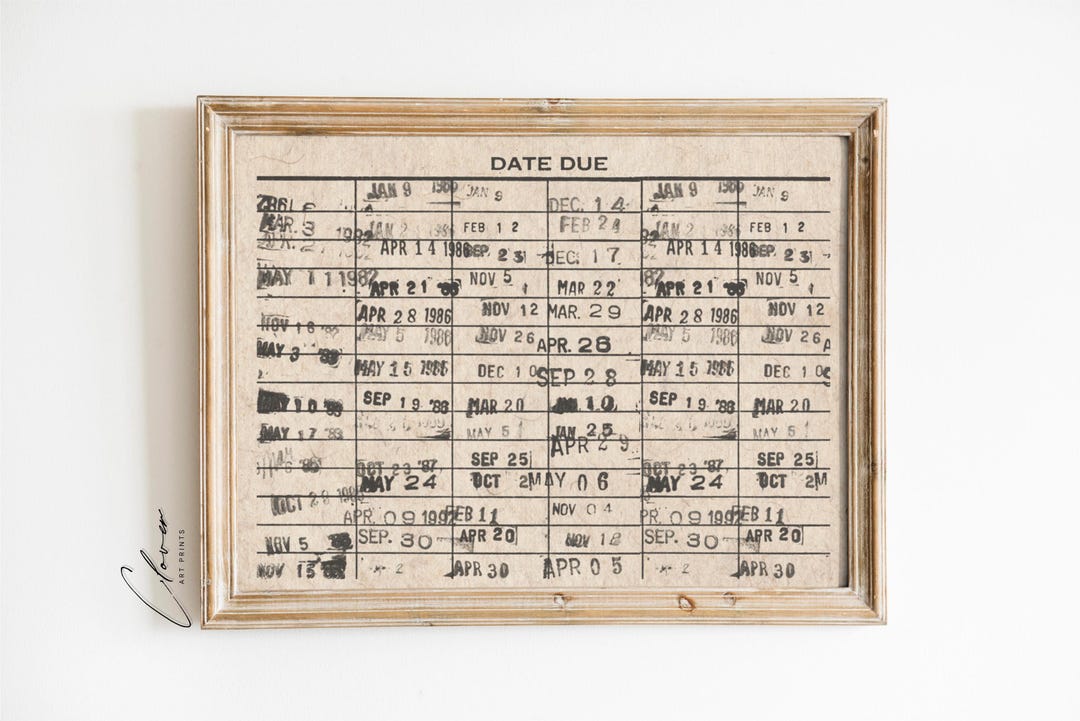 DATE DUE
JAN 9 1986 JAN 9 DEC. 14 JAN 9 1986 JAN 9
MAR. 3 FEB 12 FEB 24 FEB 12
1982 APR 14 1986 SEP. 23 DEC. 17 APR 14 1986 SEP. 23
MAY 11 1982 APR 21 '86 NOV 5 MAR 22 APR 21 '86 NOV 5
APR 28 1986 NOV 12 MAR. 29 APR 28 1986 NOV 12
NOV 16 MAY 5 1986 NOV 26 APR. 26 MAY 5 1986 NOV 26
MAY 3 '83 MAY 15 1986 DEC 10 SEP 28 MAY 15 1986 DEC 10
MAY 10 '83 SEP 19 '86 MAR 20 JAN 10 SEP 19 '86 MAR 20
MAY 17 '83 MAY 5 JAN 25 MAY 5
APR 29
SEP 25 SEP 25
OCT 23 '87 OCT 23 '87
MAY 24 OCT 2 MAY 06 MAY 24 OCT 2
OCT 28 APR. 09 1992 FEB 11 NOV 04 PR. 09 1992 FEB 11
NOV 5 SEP. 30 APR 20 NOV 18 SEP. 30 APR 20
NOV 15 2 APR 30 APR 05 2 APR 30
Clover
ART PRINTS